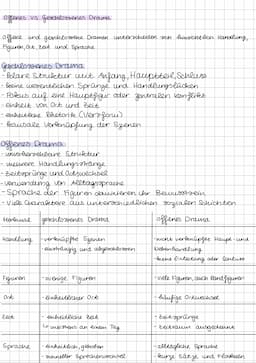 offenes vs. geschlossenes Drama
offene und geschlossene Dramen unterscheiden sich hinsichtlich Handlung,
Figuren, Ort, Zeit und Sprache
geschlossenes Drama:
- klare Struktur mit Anfang, Hauptteil, Schluss
- keine wesentlichen Sprünge und Handlungslücken
- Fokus auf eine Hauptfigur oder zentralen Konflikt
- Einheit von Ort und Zeit
- einheitliche Rhetorik (Versform)
- kausale Verknüpfung der Szenen
Offenes Drama:
- Struktur
- mehrere Handlungsstränge
- Zeitsprünge und Ortswechsel
- Verwendung von Alltagssprache
- Sprache der Figuren dominieren ihr Bewusstsein
- viele Charaktere aus unterschiedlichen sozialen Schichten
Merkmale geschlossenes Drama offenes Drama
Handlung - verknüpfte Szenen - nicht verknüpfte Haupt- und
- eindeutig und abgeschlossen Nebenhandlung
- keine Einleitung oder Schluss
Figuren - wenige Figuren - viele Figuren, auch Randfiguren
Ort - einheitlicher Ort - häufige Ortswechsel
Zeit - einheitliche Zeit - Zeitsprünge
meistens an einem Tag - Zeitraum ausgedehnte
Sprache - einheitlich, gehoben - alltägliche Sprache
- Sprachenwechsel - kurze Sätze und